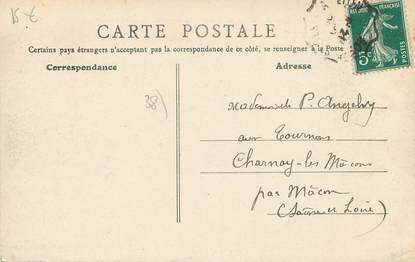 15 €
CARTE POSTALE
Certains pays étrangers n'acceptant pas la correspondance de ce côté, se renseigner à la Poste
Correspondance
Adresse
38)
Mademoiselle P.
aux Tournons
Charnay-les Mâcons
par Mâcon
(Saône et Loire)
5c
POSTES